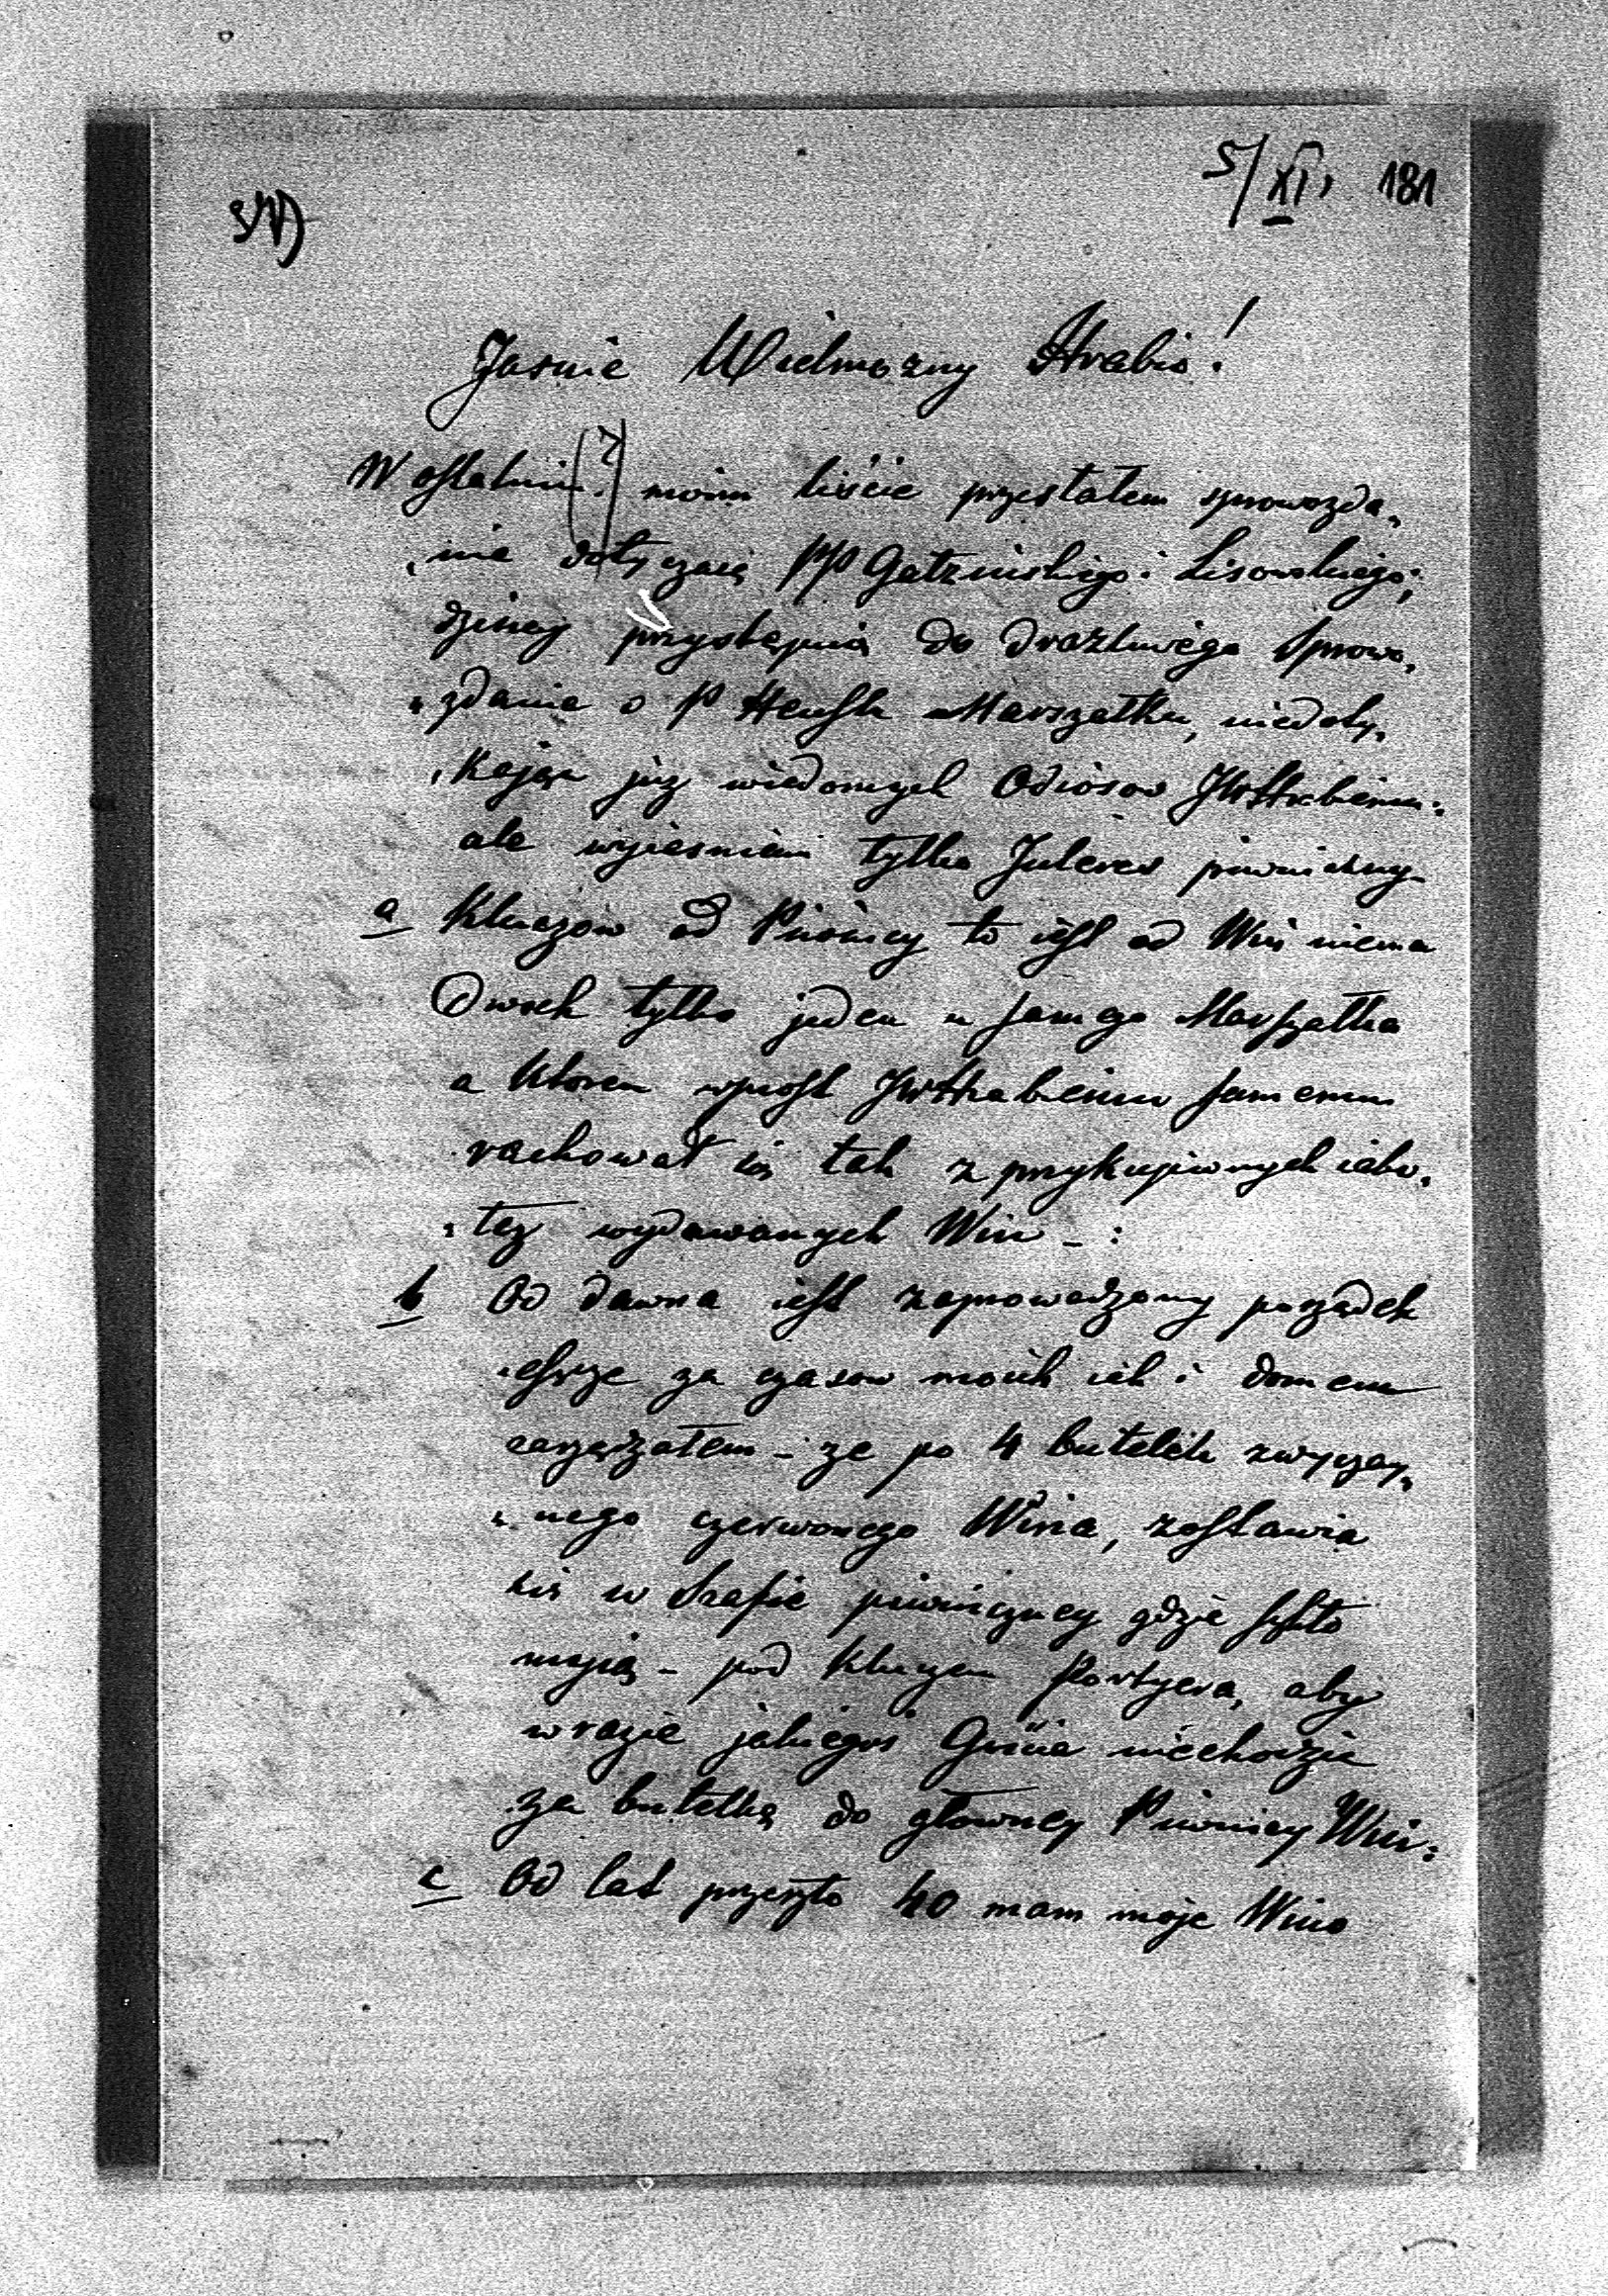 5/XI, 181
Jasnie Wielmozny Hrabio!
W ostatnim moim liście przesłałem sprowozda„
„nie dotyczącą PP Gatzinskiego i Lisowskiego;
dzisiaj przystąpię do drazliwego Sprowo„
„zdania o P Marszałku, niedoty„
„kając juz wiadomych Odiosow JWHrabiemu:
ale wyjasniam tylko Interes piwniczny
a Kluczow od Piwnicy to iest od Win niema
Dwoch tylko jeden u samego Marszałka
a ktoren wprost JWHrabiemu samemu
rachował się tak z przykupiwnych iako„
„tez wydawanych Win - :
b Od dawna iest zaprowadzony porządek
ieszcze za czasow moich iak i domem
zarządzałem - ze po 4 butelek zwyczay„
„nego czerwonego Wina, zostawia
się w Szafie piwniczney gdzie szkło
myią - pod kluczem Portyera, aby
w razie jakiegoś Gościa niechodzić
za butelką do głowney Piwnicy Win:
c Od lat przeszło 40 mam moje Wino